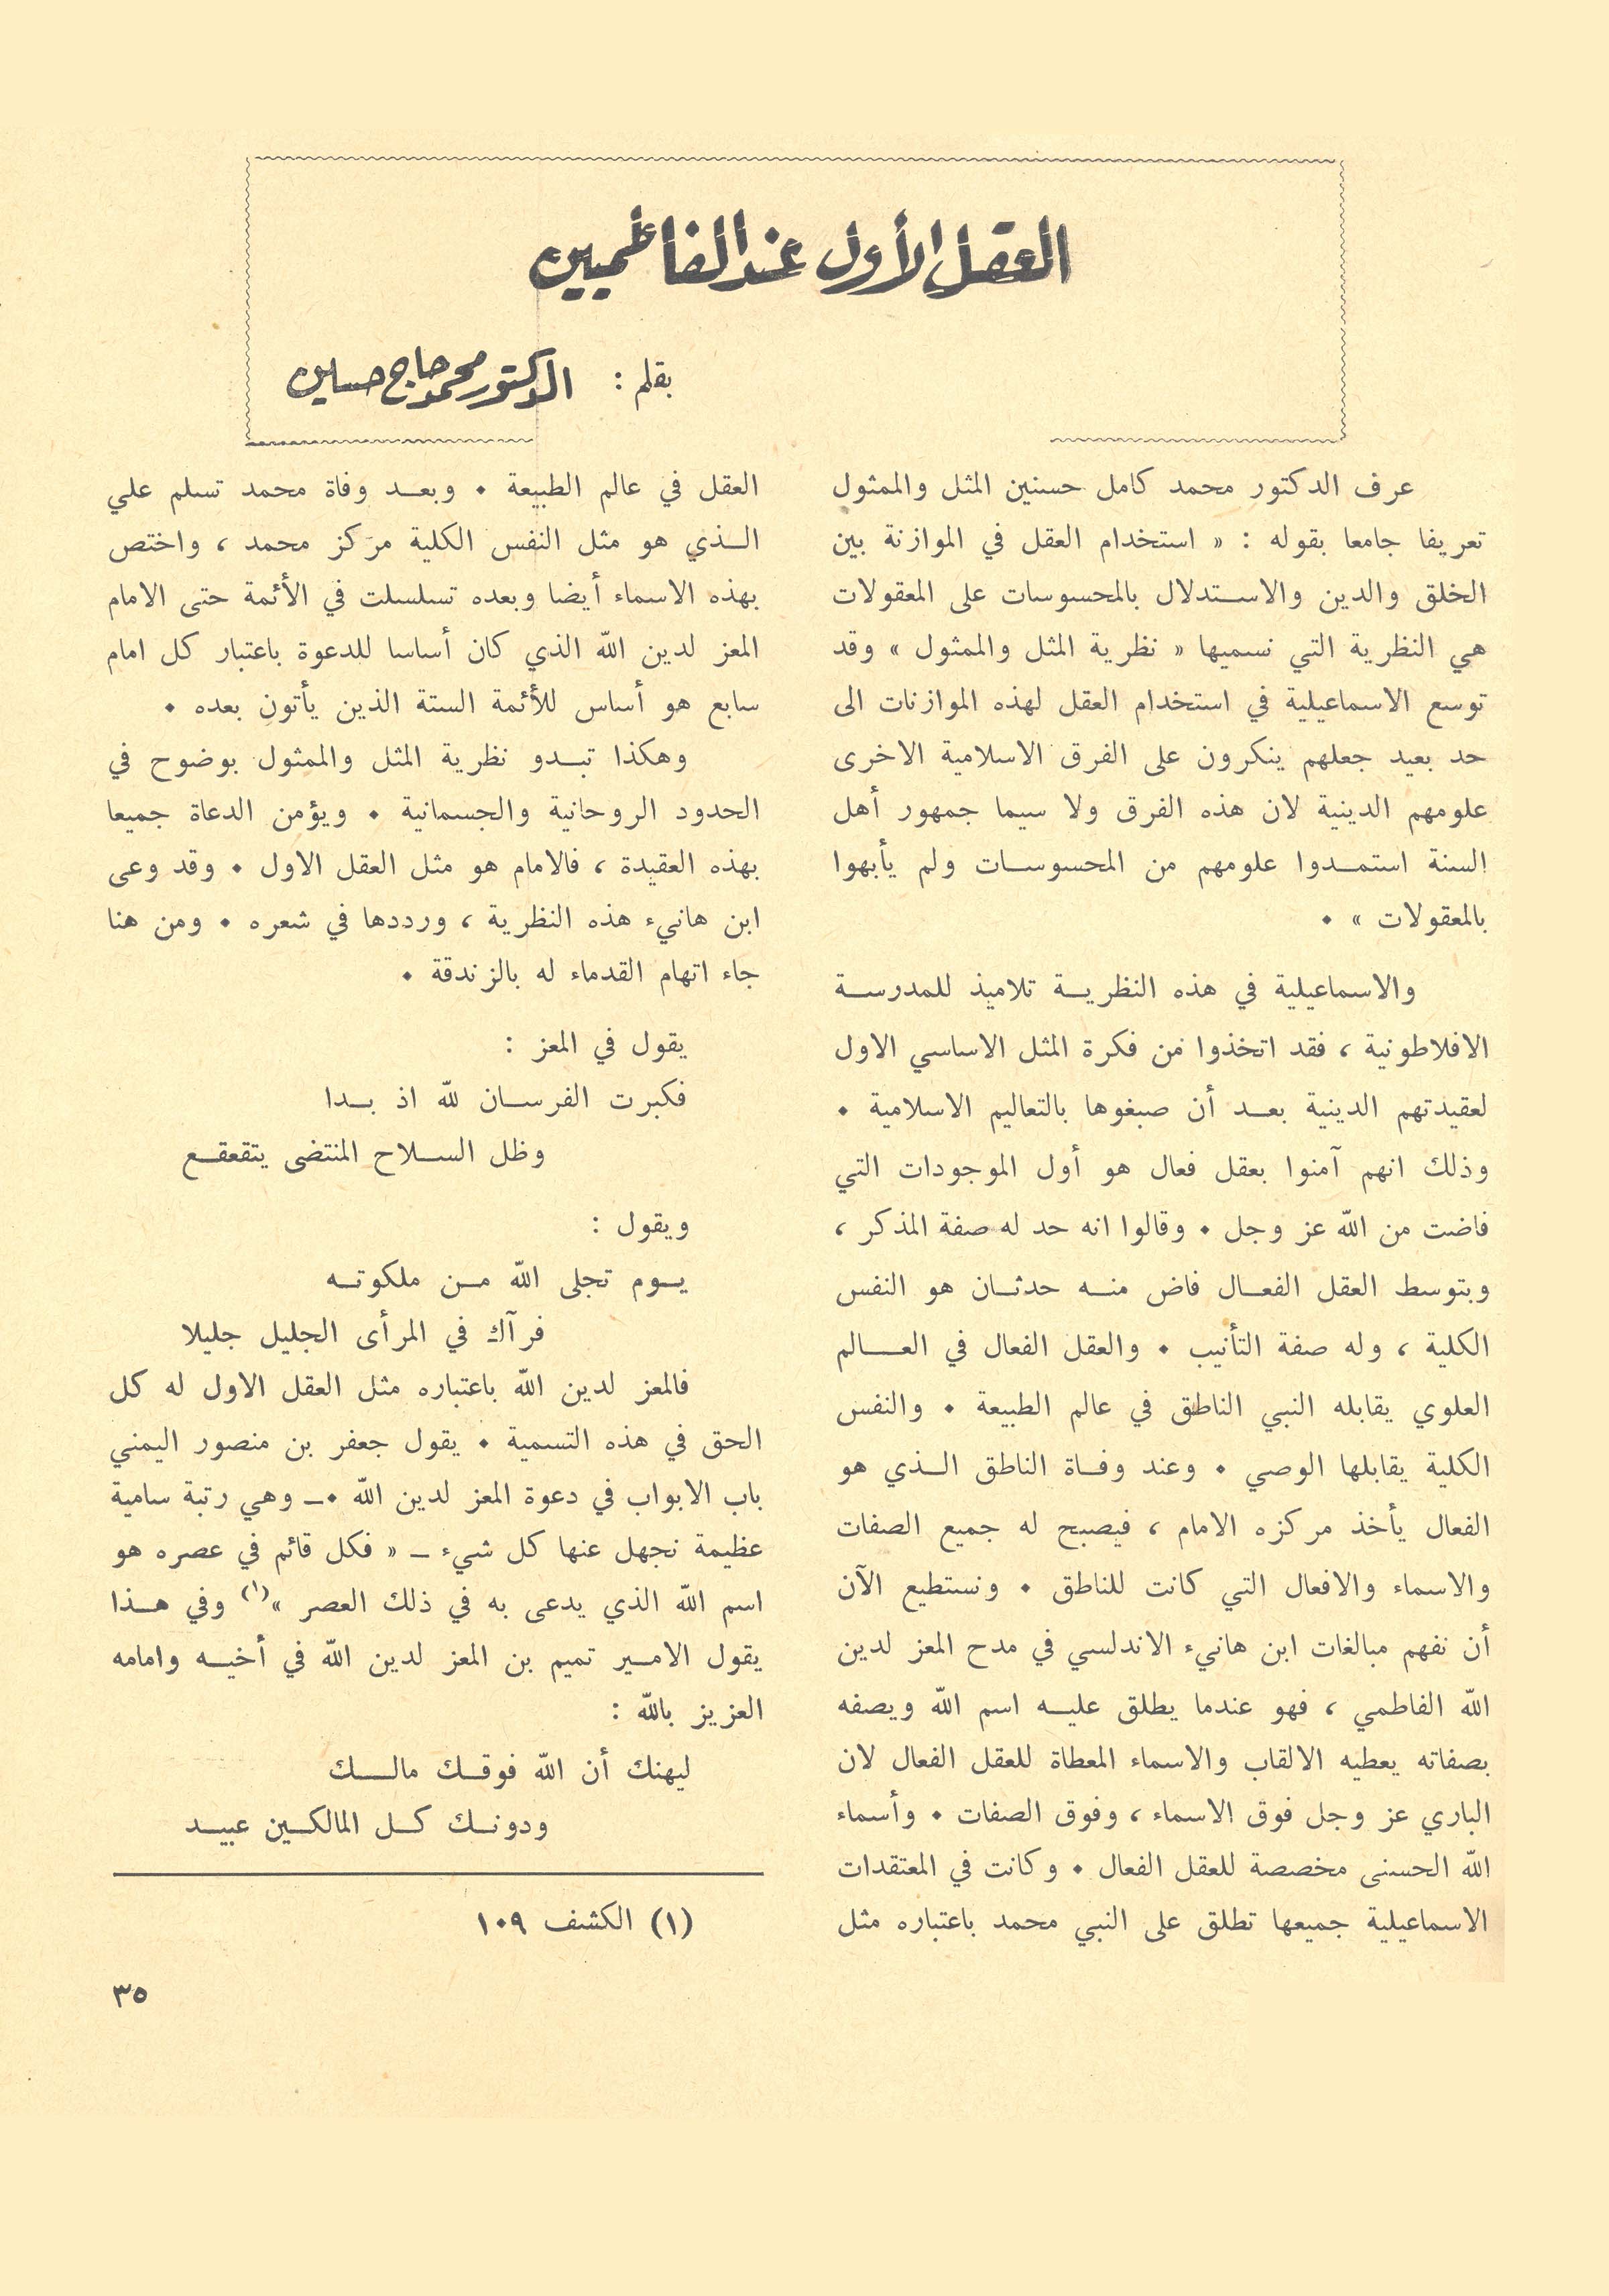 العقل الأول عند الفاطميين
بقلم : الدكتور محمد حاج حسين
عرف الدكتور محمد كامل حسنين المثل والممثول
تعريفا جامعا بقوله : « استخدام العقل في الموازنة بين
الخلق والدين والاستدلال بالمحسوسات على المعقولات
هي النظرية التي نسميها « نظرية المثل والممثول » وقد
توسع الاسماعيلية في استخدام العقل لهذه الموازنات الى
حد بعيد جعلهم ينكرون على الفرق الاسلامية الاخرى
علومهم الدينية لان هذه الفرق ولا سيما جمهور أهل
السنة استمدوا علومهم من المحسوسات ولم يأبهوا
بالمعقولات » ٠
والاسماعيلية في هذه النظرية تلاميذ للمدرسة
الافلاطونية ، فقد اتخذوا من فكرة المثل الاساسي الاول
لعقيدتهم الدينية بعد أن صبغوها بالتعاليم الاسلامية ٠
وذلك انهم آمنوا بعقل فعال هو أول الموجودات التي
فاضت من الله عز وجل ٠ وقالوا انه حد له صفة المذكر ،
وبتوسط العقل الفعال فاض منه حدثان هو النفس
الكلية ، وله صفة التأنيب ٠ والعقل الفعال في العالم
العلوي يقابله النبي الناطق في عالم الطبيعة ٠ والنفس
الكلية يقابلها الوصي ٠ وعند وفاة الناطق الذي هو
الفعال يأخذ مركزه الامام ، فيصبح له جميع الصفات
والاسماء والافعال التي كانت للناطق ٠ ونستطيع الآن
أن نفهم مبالغات ابن هانيء الاندلسي في مدح المعز لدين
الله الفاطمي ، فهو عندما يطلق عليه اسم الله ويصفه
بصفاته يعطيه الالقاب والاسماء المعطاة للعقل الفعال لان
الباري عز وجل فوق الاسماء ، وفوق الصفات ٠ وأسماء
الله الحسنى مخصصة للعقل الفعال ٠ وكانت في المعتقدات
الاسماعيلية جميعها تطلق على النبي محمد باعتباره مثل
العقل في عالم الطبيعة ٠ وبعد وفاة محمد تسلم علي
الذي هو مثل النفس الكلية مركز محمد ، واختص
بهذه الاسماء أيضا وبعده تسلسلت في الأئمة حتى الامام
المعز لدين الله الذي كان أساسا للدعوة باعتبار كل امام
سابع هو أساس للأئمة الستة الذين يأتون بعده ٠
وهكذا تبدو نظرية المثل والممثول بوضوح في
الحدود الروحانية والجسمانية ٠ ويؤمن الدعاة جميعا
بهذه العقيدة ، فالامام هو مثل العقل الاول ٠ وقد وعى
ابن هانيء هذه النظرية ، ورددها في شعره ٠ ومن هنا
جاء اتهام القدماء له بالزندقة ٠
يقول في المعز :
فكبرت الفرسان لله اذ بدا
وظل السلاح المنتضى يتقعقع
ويقول :
يوم تجلى الله من ملكوته
فرآك في المرأى الجليل جليلا
فالمعز لدين الله باعتباره مثل العقل الاول له كل
الحق في هذه التسمية ٠ يقول جعفر بن منصور اليمني
باب الابواب في دعوة المعز لدين الله ٠ـ وهي رتبة سامية
عظيمة نجهل عنها كل شيء ـ « فكل قائم في عصره هو
اسم الله الذي يدعى به في ذلك العصر »(١) وفي هذا
يقول الامير تميم بن المعز لدين الله في أخيه وامامه
العزيز بالله :
ليهنك أن الله فوقك مالك
ودونك كل المالكين عبيد
(١) الكشف ١٠٩
٣٥